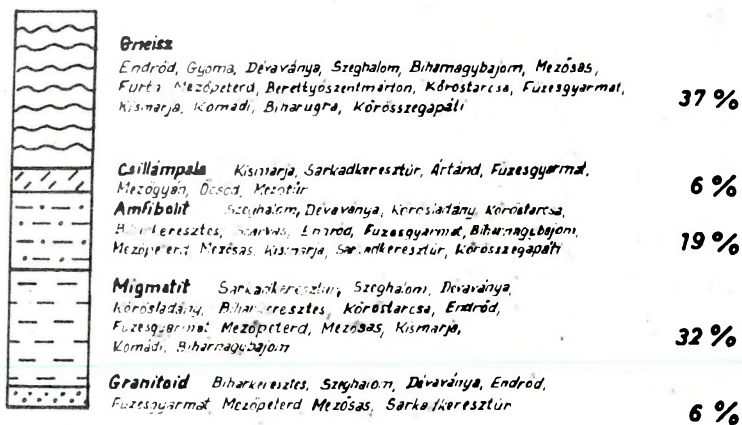 Gneisz
Endród, Gyoma, Dévaványa, Szeghalom, Biharnagybajom, Mezősas,
Furta Mezőpeterd, Berettyószentmárton, Köröstarcsa, Füzesgyarmat,
Kismarja, Komádi, Biharugra, Körösszegapáti
37 %
Csillámpala Kismarja, Sarkadkeresztúr, Ártánd, Füzesgyarmat,
Mezőgyán, Öcsöd, Mezőtúr
6 %
Amfibolit Szeghalom, Dévaványa, Körösladány, Köröstarcsa,
Biharkeresztes, Szarvas, Endród, Füzesgyarmat, Biharnagybajom,
Mezőpeterd, Mezősas, Kismarja, Sarkadkeresztúr, Körösszegapáti
19 %
Migmatit Sarkadkeresztúr, Szeghalom, Dévaványa,
Körösladány, Biharkeresztes, Köröstarcsa, Endród,
Füzesgyarmat Mezőpeterd, Mezősas, Kismarja,
Komádi, Biharnagybajom
32 %
Granitoid Biharkeresztes, Szeghalom, Dévaványa, Endród,
Füzesgyarmat, Mezőpeterd Mezősas, Sarkadkeresztúr
6 %